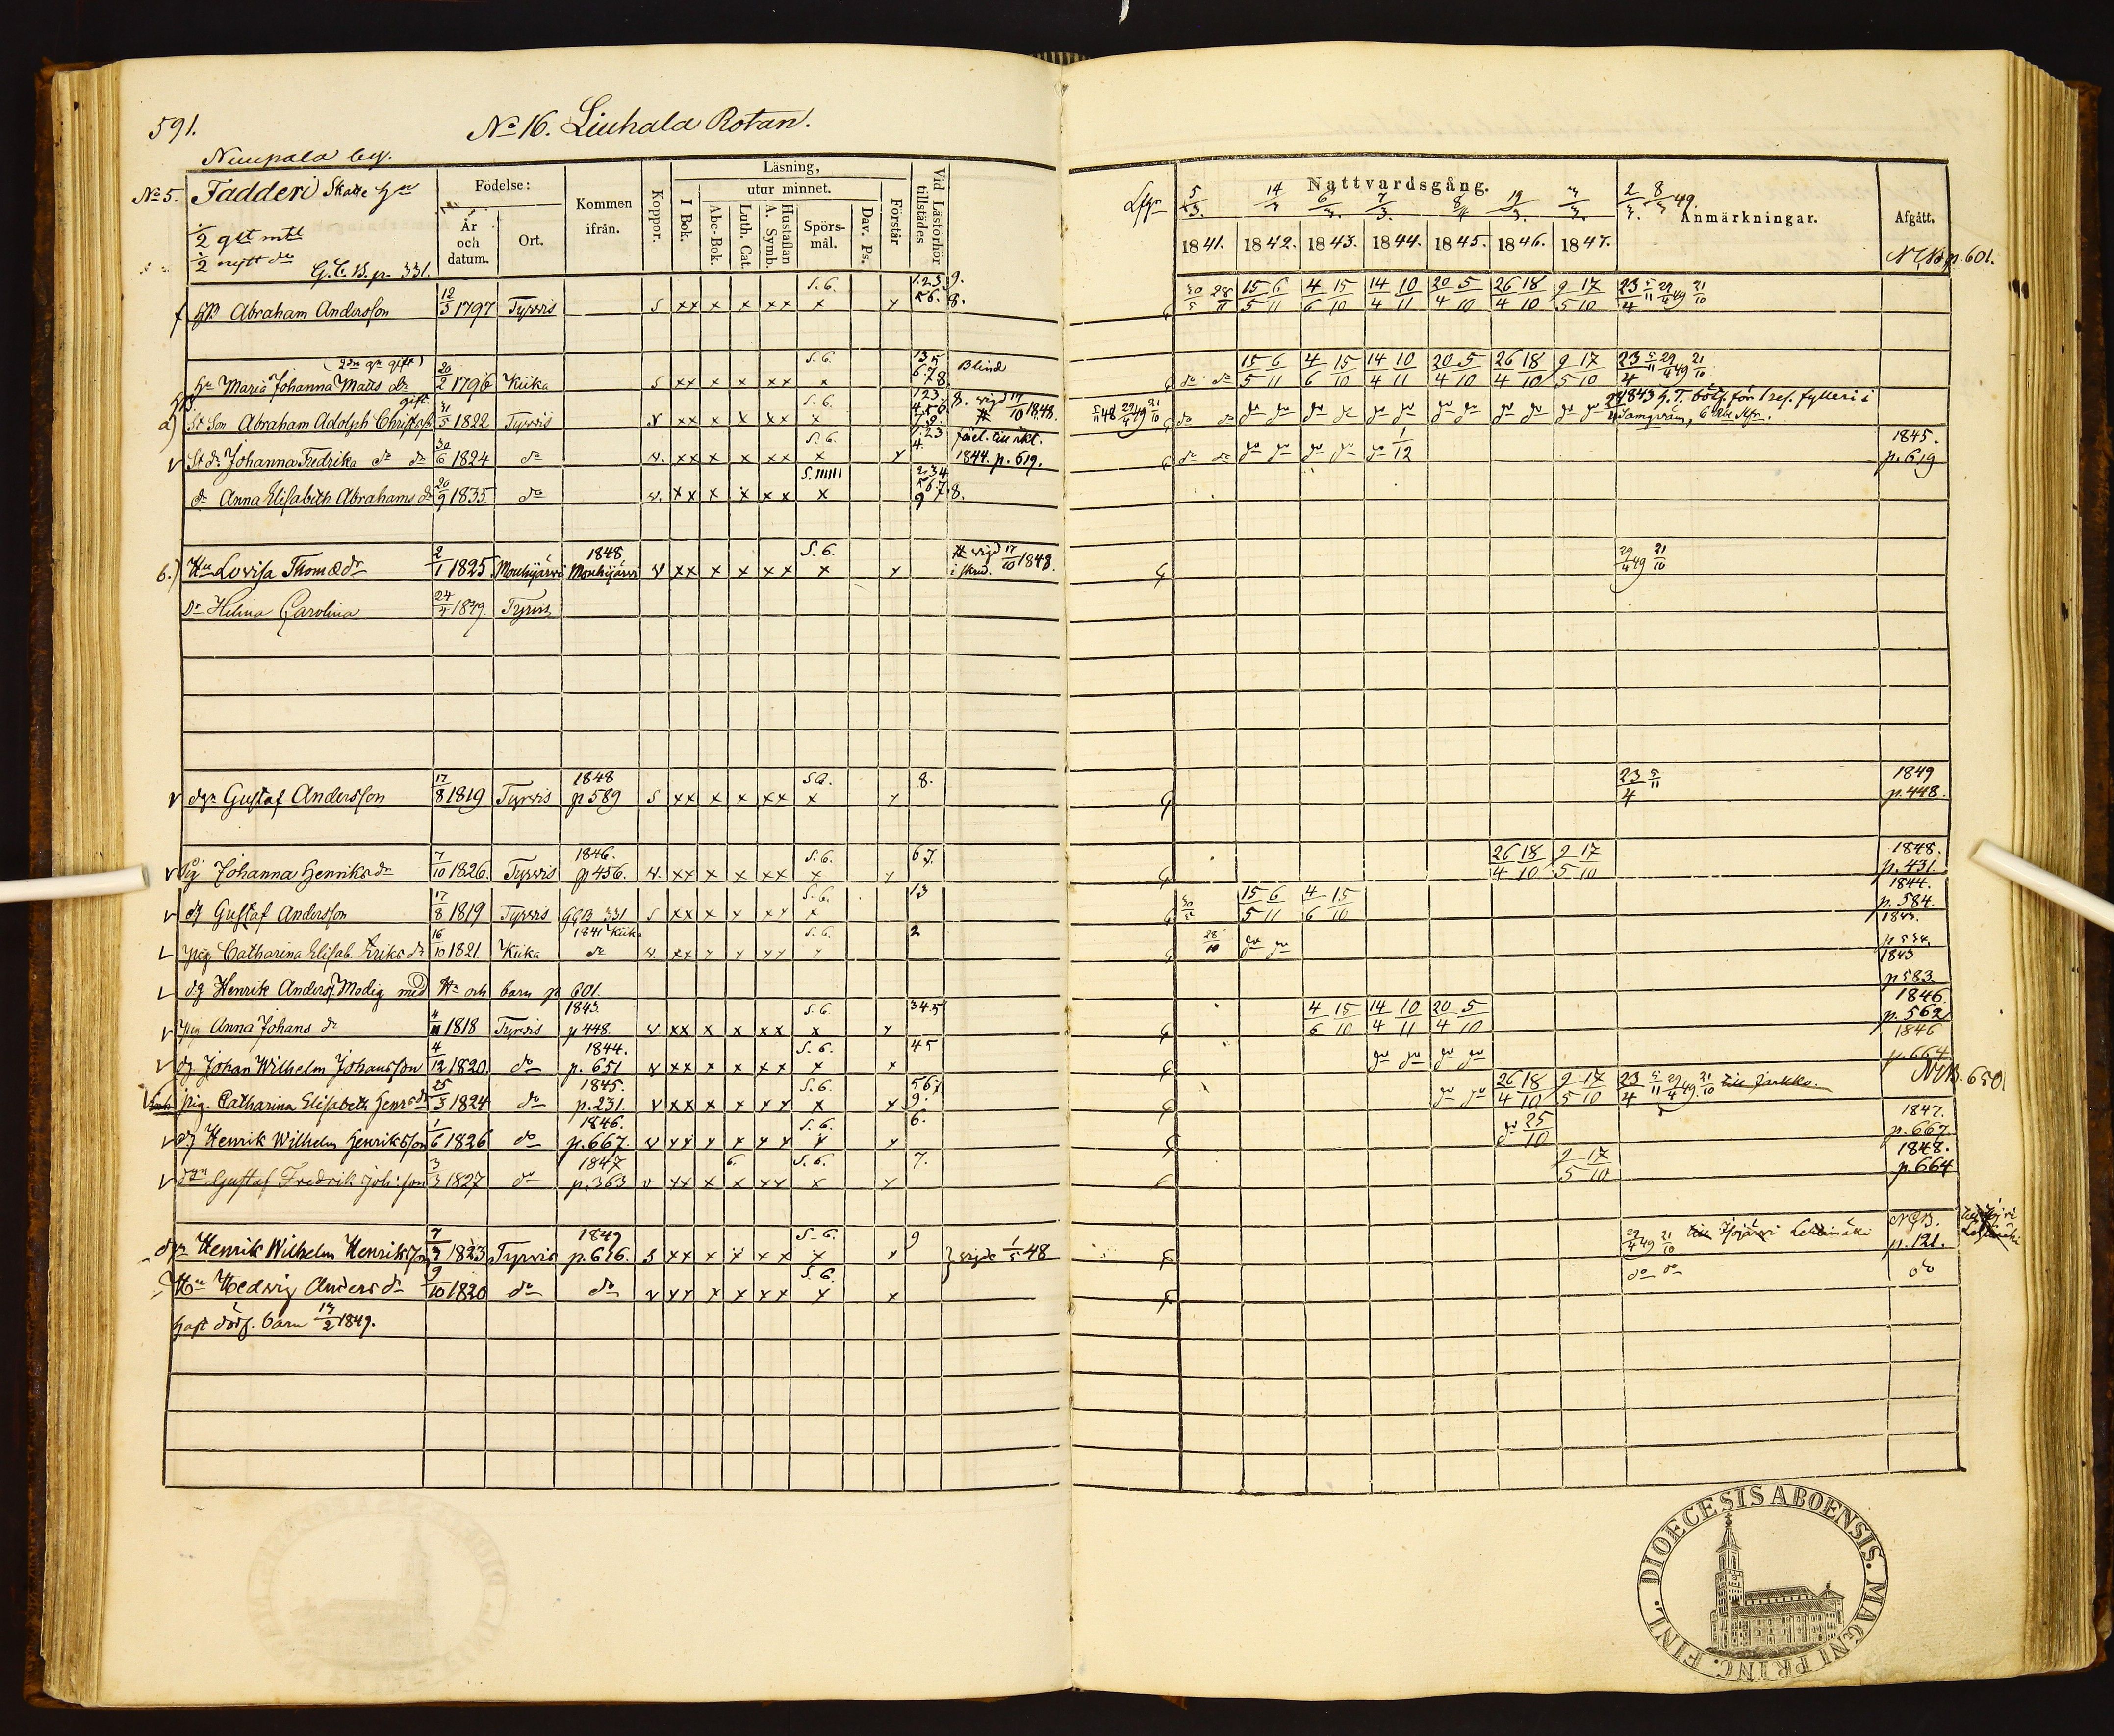 591.
No 16. Liuhala Rotan.
Nuupala by.
No 5. Fadderi Skatte Hn
1/2 glt mtl
1/2 nytt do
G.C.B. p. 331.
Födelse:
År och datum.
Ort.
Kommen ifrån.
Koppor.
Läsning,
I Bok.
utur minnet.
Abc-Bok.
Luth. Cat.
Hustaflan A. Symb.
Spörs-mål.
Dav. Ps.
Förstår
Vid Läsförhör tillstädes
Nattvardsgång.
5/3. 14/3 6/3. 7/3. 19/3. 8/3 49.
1841. 1842. 1843. 1844. 1845. 1846. 1847.
Anmärkningar.
Afgått.
NCB p. 601.
Abraham Andersson 12/3 1797 Tyrvis S xx x x xx S.6. x 1.2.3. 5 6. 8. 9. 30/5 28/11 15/5 6/11 4/6 15/10 14/4 10/11 20/4 5/10 26/4 18/10 9/5 17/10 23/4 5/11 29/4 49 21/10
(2dra g. gift)
Hu Maria Johanna Matts dr 20/2 1796 Kiika S xx x x xx S.6. x 1 3 5 6. 7 8 Blind do do 15/5 6/11 4/6 15/10 14/4 10/11 20/4 5/10 26/4 18/10 9/5 17/10 23/4 5/11 29/4 49 21/10
gift
a) St Son Abraham Adolph Christofs 31/5 1822 Tyrvis v xx x x xx S.6. x 123 456 8. vigd 17/10 1848. 5/11 48 29/4 49 21/10 do do 1843 H.T. bötf. för 1 ref. fylleri i
v St dr Johanna Fredrika do dr 30/6 1824 do v. xx x x xx S.6. x 123 4. 1844. p. 619. do do 1/12 1845. p. 619
dr Anna Elisabeth Abrahams dr 20/9 1835. do v. xx x x xx x 2.34 567.8. 9
b.) Hu Lovisa Thomædr 2/1 1825 Mouhijärvi 1848 Mouhijärvi v xx x x xx S.6. x # vigd 17/10 1848. i skrud. 29/4 49 21/10
Dr Hilma Carolina 24/4 1849. Tyrvis
v dgn Gustaf Andersson 17/8 1819 Tyrvis 1848 p 589 S xx x x xx S.6. x 8. 23/4 5/11 1849 p. 448.
v Pig Johanna Henriksdr 7/10 1826. Tyrvis 1846. p 456. v. xx x x xx S.6. x 67. 26/4 18/10 9/5 17/10 1848. p. 431.
v dg Gustaf Andersson 17/8 1819 Tyrvis GCB 331 S xx x x xx S.6. x 13 30/5 15/5 6/11 4/6 15/10 1844. p. 584.
Pig Catharina Elisab. Eriks dr 16/10 1821. Kiika 1841 Kiika do v. xx x x xx S.6. x 2 28/10 1843.
dg Henrik Anders. Modig med Hu och barn p 601. 1843 p 583
v Pig Anna Johans dr 4/11 1818 Tyrvis 1843. p 448. v. xx x x xx S.6. x 345 4/6 15/10 14/4 10/11 20/4 5/10 1846. p. 562
v dg Johan Wilhelm Johansson 4/12 1820. do 1844. p. 651 v xx x x xx S.6. x 45 1846 p. 664.
pig. Catharina Elisabeth Henrsdr 25/3 1824 do 1845. p. 231. v xx x x xx S.6. x 567 9. 26/4 18/10 9/5 17/10 23/4 5/11 29/4 49. 21/10 till Jaakko. NCB. 650
v dg Henrik Wilhelm Henriksson 1/6 1826 do 1846. p. 667. v xx x x xx S.6. x 6. 25/10 1847. p. 667.
v dgn Gustaf Fredrik Joh:son 3/3 1827 do 1847 p. 363 v xx x x xx S.6. x 7. 9/5 17/10 1848. p. 664
dgn Henrik Wilhelm Henriksson 7/7 1823 Tyrvis 1849 p. 616. S xx x x xx S.6. x 9 vigde 1/5 48 29/4 49 21/10 NCB. p. 121.
Hu Hedvig Anders dr 9/10 1820 do do v xx x x xx S.6. x do do do
haft dödf. barn 19/2 1849.
FINL. DIOECESIS ABOENSIS. MAGNI PRINC.